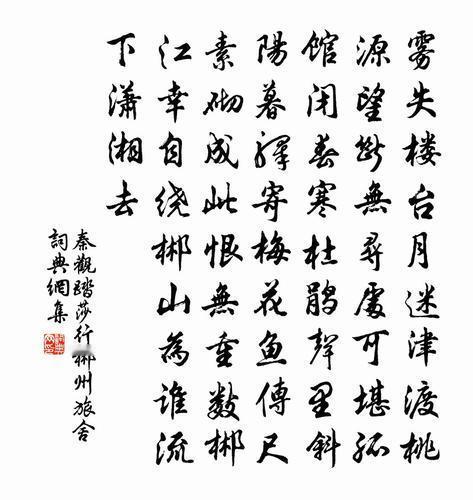 雾失楼台月迷津渡桃
源望断無尋處可堪孤
馆闭春寒杜鹃聲里斜
陽暮驛寄梅花魚傳尺
素砌成此恨無重数郴
江幸自绕郴山為谁流
下瀟湘去
秦觀踏莎行郴州旅舍
詞典網集